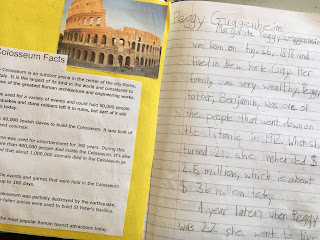 Colosseum Facts
Colosseum is an outdoor arena in the center of the city Rome,
Italy. It is the largest of its kind in the world and considered to
one of the greatest Roman architecture and engineering works
used for a variety of events and could hold 50,000 people.
earthquakes and stone robbers left it in ruins, but part of it still
today.
60,000 Jewish slaves to build the Colosseum. It was built of
and concrete.
was used for entertainment for 390 years. During this
more than 400,000 people died inside the Colosseum. It's also
that about 1,000,000 animals died in the Colosseum as
the events and games that were held in the Colosseum
up to 100 days.
Colosseum was partially destroyed by an earthquake.
fallen pieces were used to build St Peter's Basilica.
the most popular Roman tourist attractions today.
Peggy Guggenheim
Marguerite Peggy Guggenheim
was born on
lived in New York City. Her
family was very wealthy. Peggy's
father, Benjamin, was one of
the people that went down on
the Titanic in 1912. When she
turned 21, she inherited $
million, which is about
$ 36 million today.
A year later, when Peggy
was 22 she went to live